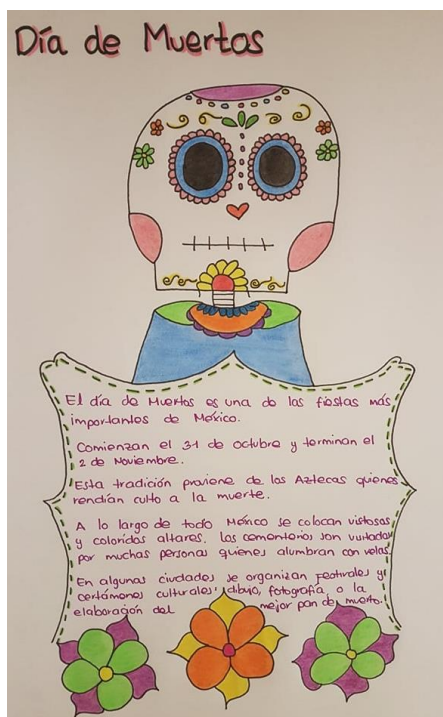 Día de Muertos
El día de Muertos es una de las fiestas más
importantes de México.
Comienzan el 31 de octubre y terminan el
2 de Noviembre.
Esta tradición proviene de los Aztecas quienes
rendían culto a la muerte.
A lo largo de todo México se colocan vistosas
y coloridos altares. Los cementerios son visitados
por muchas personas quienes alumbran con velas.
En algunas ciudades se organizan festivales y
certámenes culturales, dibujo, fotografía, o la
elaboración del mejor pan de muerto.